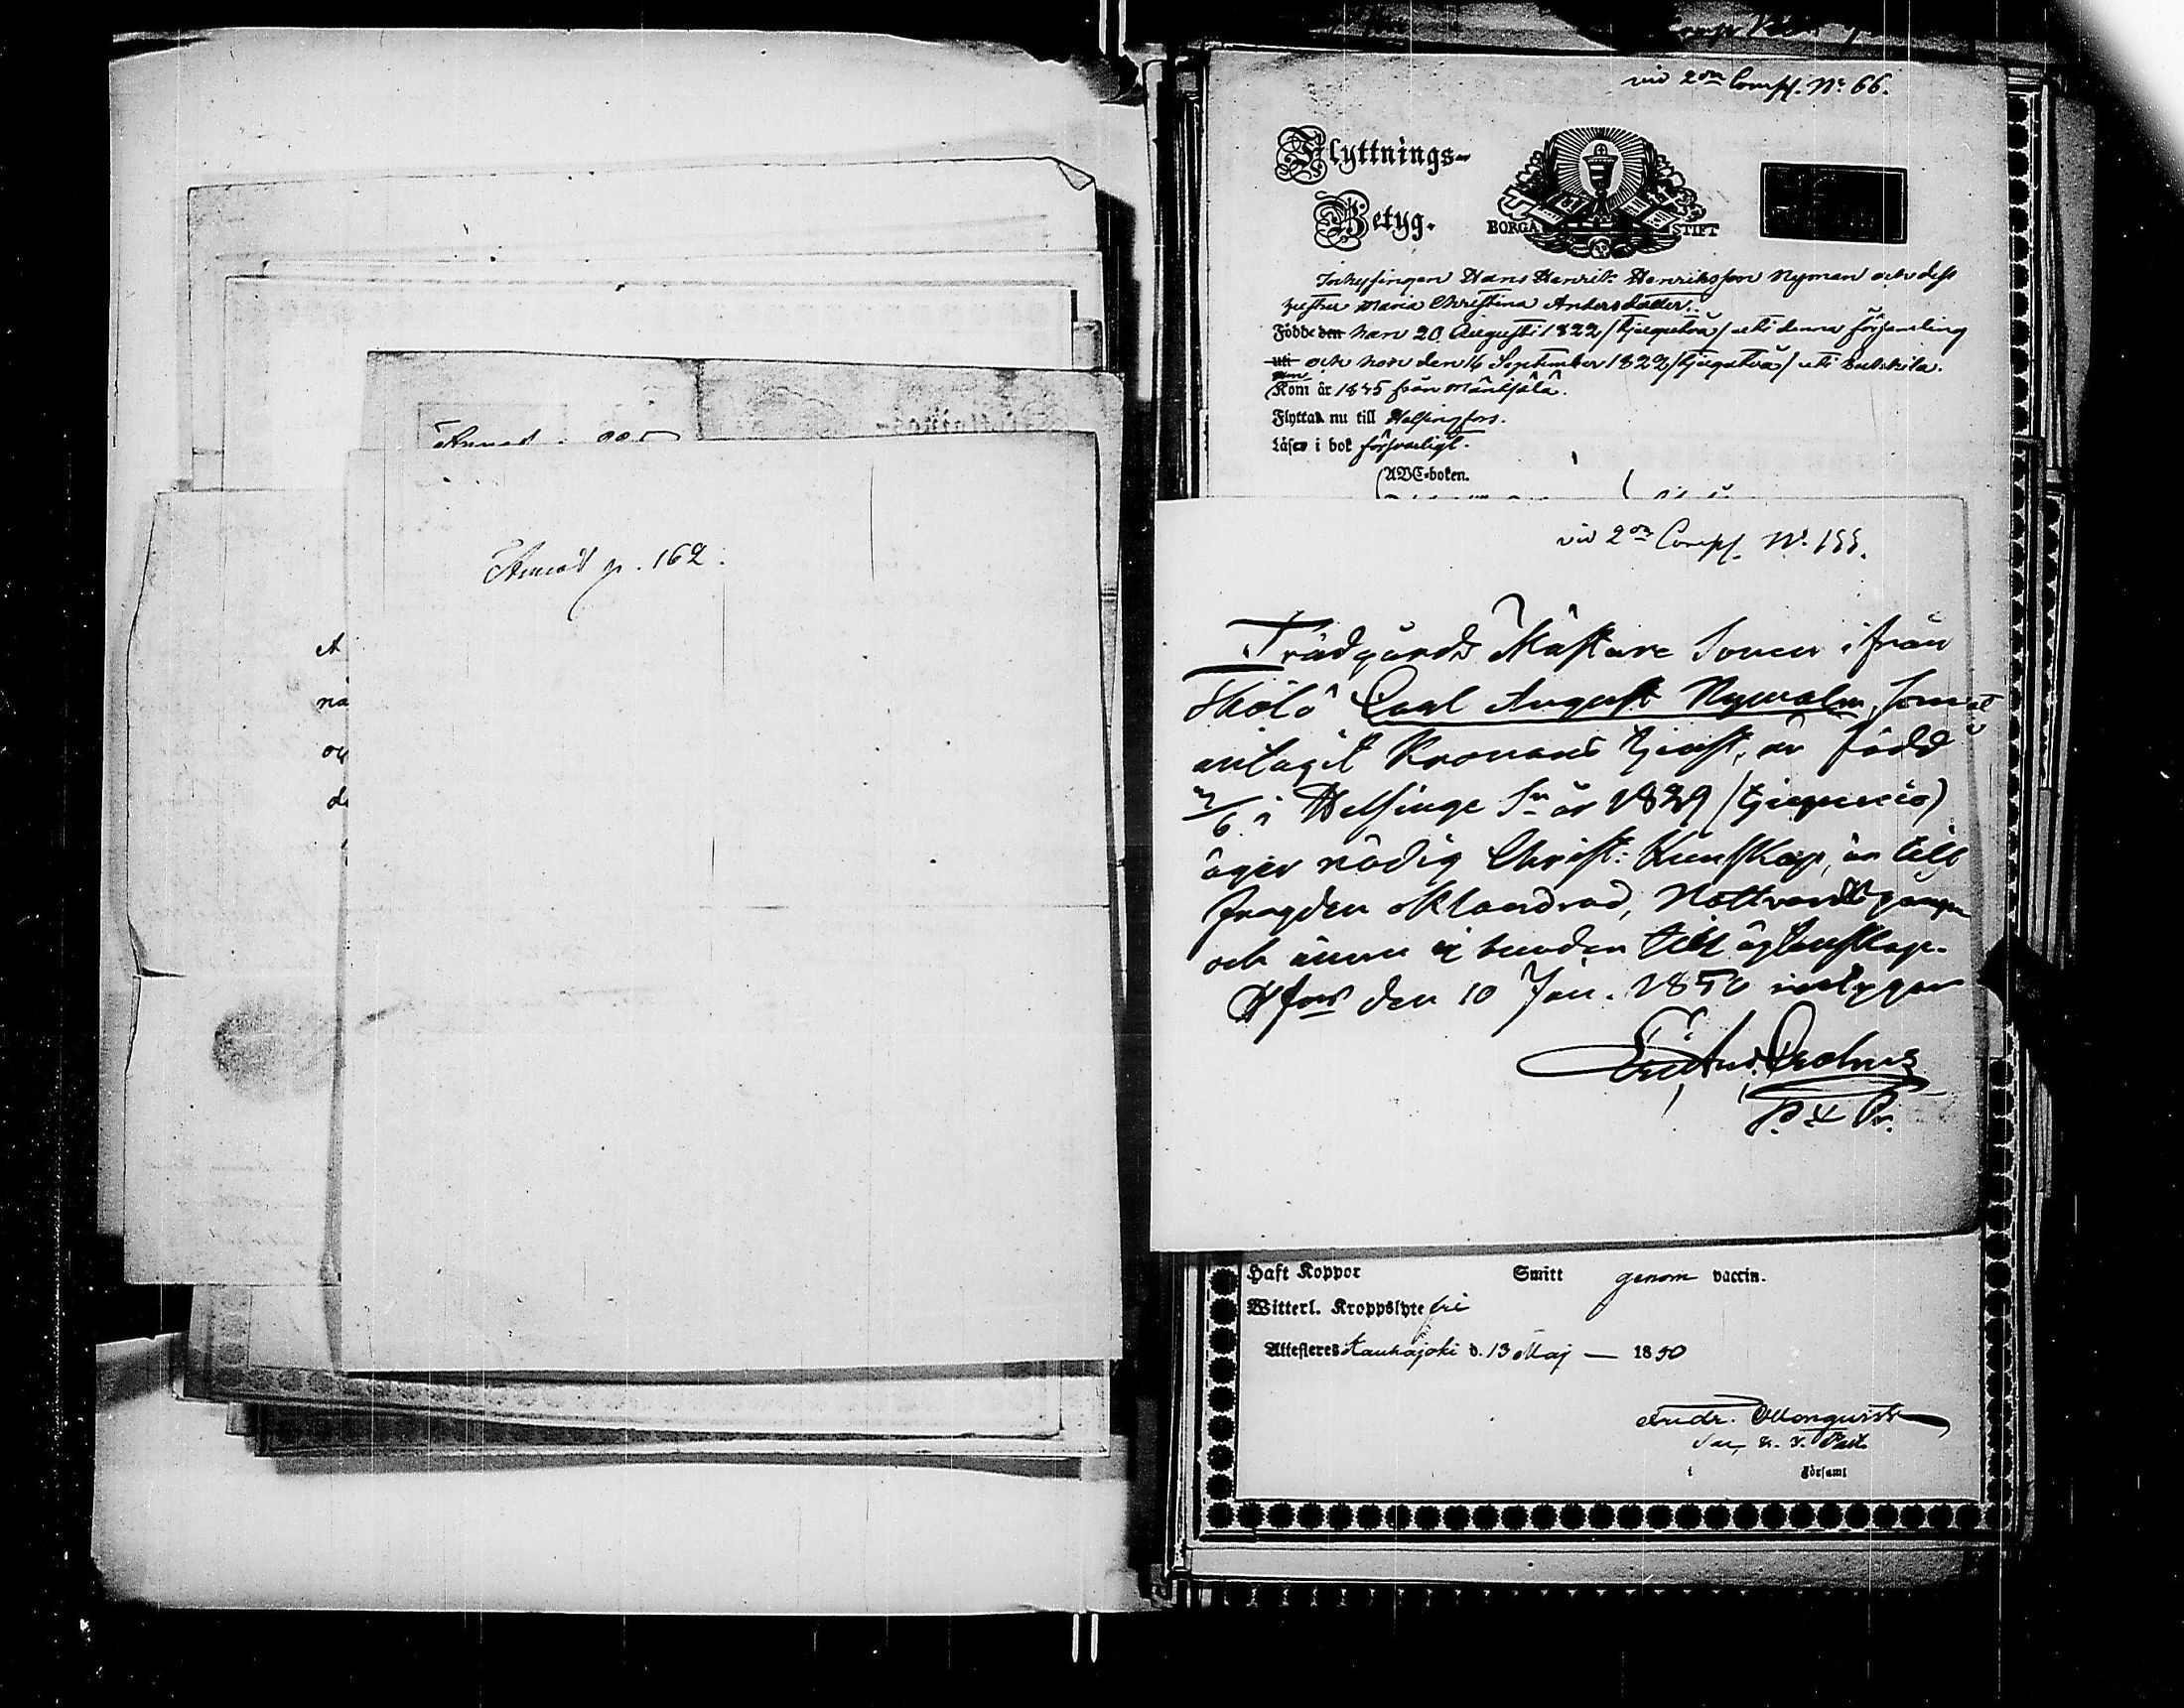 Annot p. 162.
vid 2dra Comp. No 66.
Flyttnings-
Betyg.
BORGÅ STIFT
Inhysingen Hans Henrik Henriksson Nyman och dess
hustru Maria Christina Andersdotter.
Födde den han 20 Augusti 1822 /tjugutvå/ uti denna församling
uti och hon den 16 September 1822 /tjugutvå/ uti
Kom år 1845 från Mäntsälä.
Flyttar nu till Helsingfors.
Läser i bok försvarligt.
ABC-boken.
vid 2dra Comp. No 155.
Trädgårds Mästare Sonen ifrån
Hölö Carl August Nymalm, som
antagit Kronans tjenst, är född
i Helsinge Sn år 1829 (tjugunio)
äger nödig Christ: Kunskap, är till
fragden oklandrad, Nattvardsgången
och ännu ej bunden till ägtenskap.
Hfors den 10 Jan. 1850 intygar
Haft Koppor Smitt genom vaccin.
Witterl. Kroppslyte fri
Attesteres Kauhajoki d. 13 Maj — 1850
Andr.
i Församl